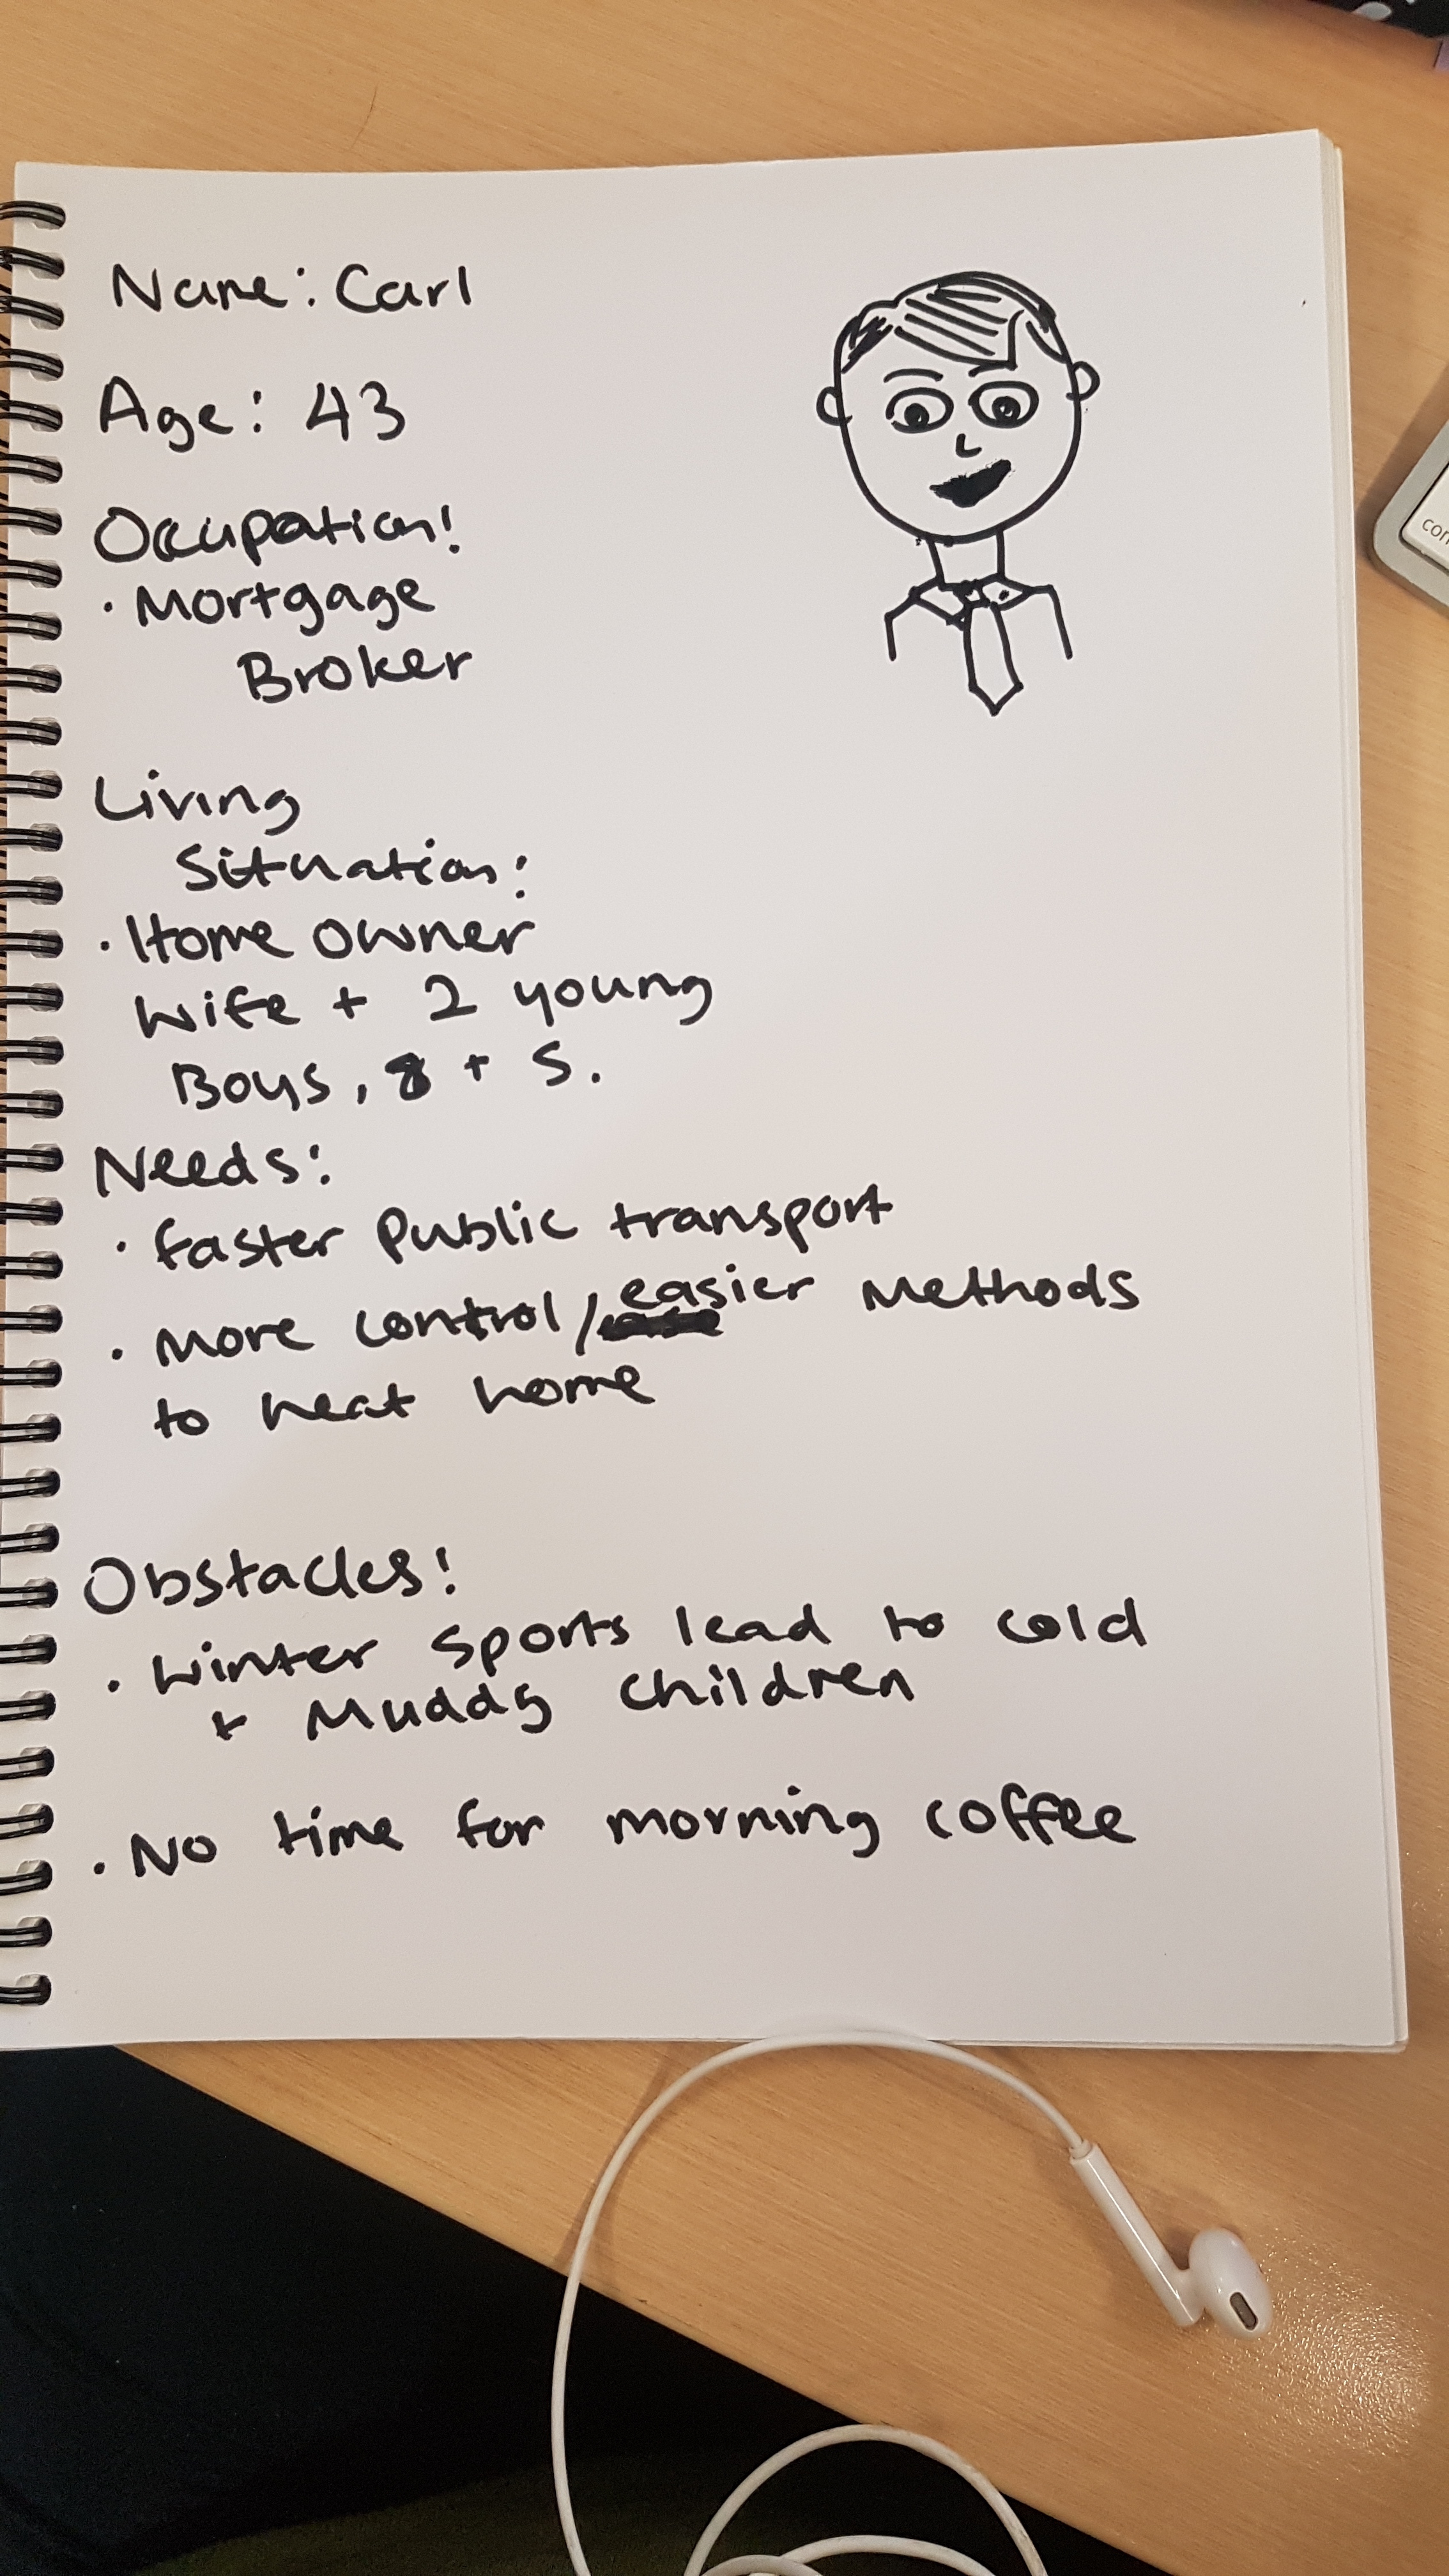 Name: Carl
Age: 43
Occupation:
· Mortgage
Broker
Living
Situation:
· Home owner
Wife + 2 young
Boys, 8 + 5.
Needs:
· faster Public transport
· More control/easier Methods
to heat home
Obstacles:
· Winter Sports lead to cold
+ Muddy children
· No time for morning coffee